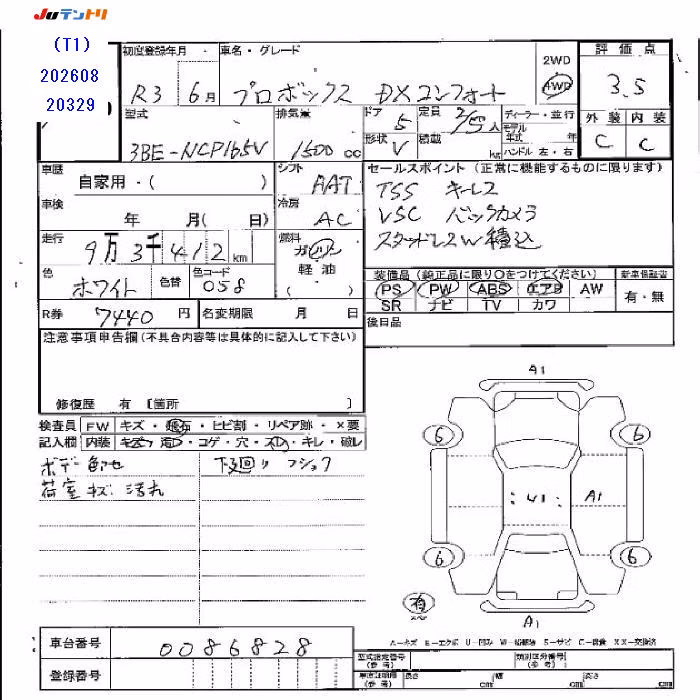 JUテントリ
(T1)
202608
20329
初度登録年月
車名・グレード
2WD
4WD
評価点
R3 6月
プロボックス DXコンフォート
3.5
型式
排気量
ドア
定員
ディーラー・並行
外装 内装
5
2/5人
モデル年式 年
3BE-NCP165V
1500 cc
形状
V
積載
kg
ハンドル 左・右
C C
車歴
シフト
セールスポイント (正常に機能するものに限ります)
自家用・( )
AAT
TSS キーレス
車検
冷房
年 月( 日)
AC
VSC バックカメラ
走行
燃料
9万3千412km
ガソリン
スタッドレスW積込
色
色替
色コード
軽油
ホワイト
058
( )
装備品 (純正品に限り○をつけてください)
新車保証書
PS PW ABS エアB AW
有・無
SR ナビ TV カワ
R券
7440円
名変期限 月 日
後日品
注意事項申告欄(不具合内容等は具体的に記入して下さい)
修復歴 有 〔箇所 〕
検査員
FW
キズ・飛石・ヒビ割・リペア跡・×要
記入欄
内装
キズ・汚レ・コゲ・穴・スレ・キレ・破レ
ボデー色ボケ
下廻り フショク
荷室キズ 汚れ
A1
6
6
U1
A1
6
6
有
スペア
A1
A-キズ E-エクボ U-凹ミ W-補修跡 S-サビ C-腐食 XX-交換済
車台番号
0086828
登録番号
型式指定番号
(参考)
類別区分番号
(参考)
車庫証明用
(参考)
長さ
cm
幅
cm
高さ
cm